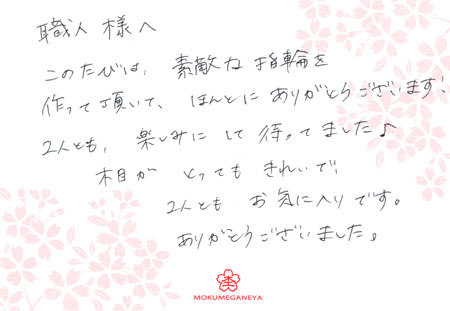 職人様へ
このたびは、素敵な指輪を
作って頂いて、ほんとにありがとうございます!
2人とも、楽しみにして待ってました♪
木目がとってもきれいで、
2人ともお気に入りです。
ありがとうございました。
MOKUMEGANEYA